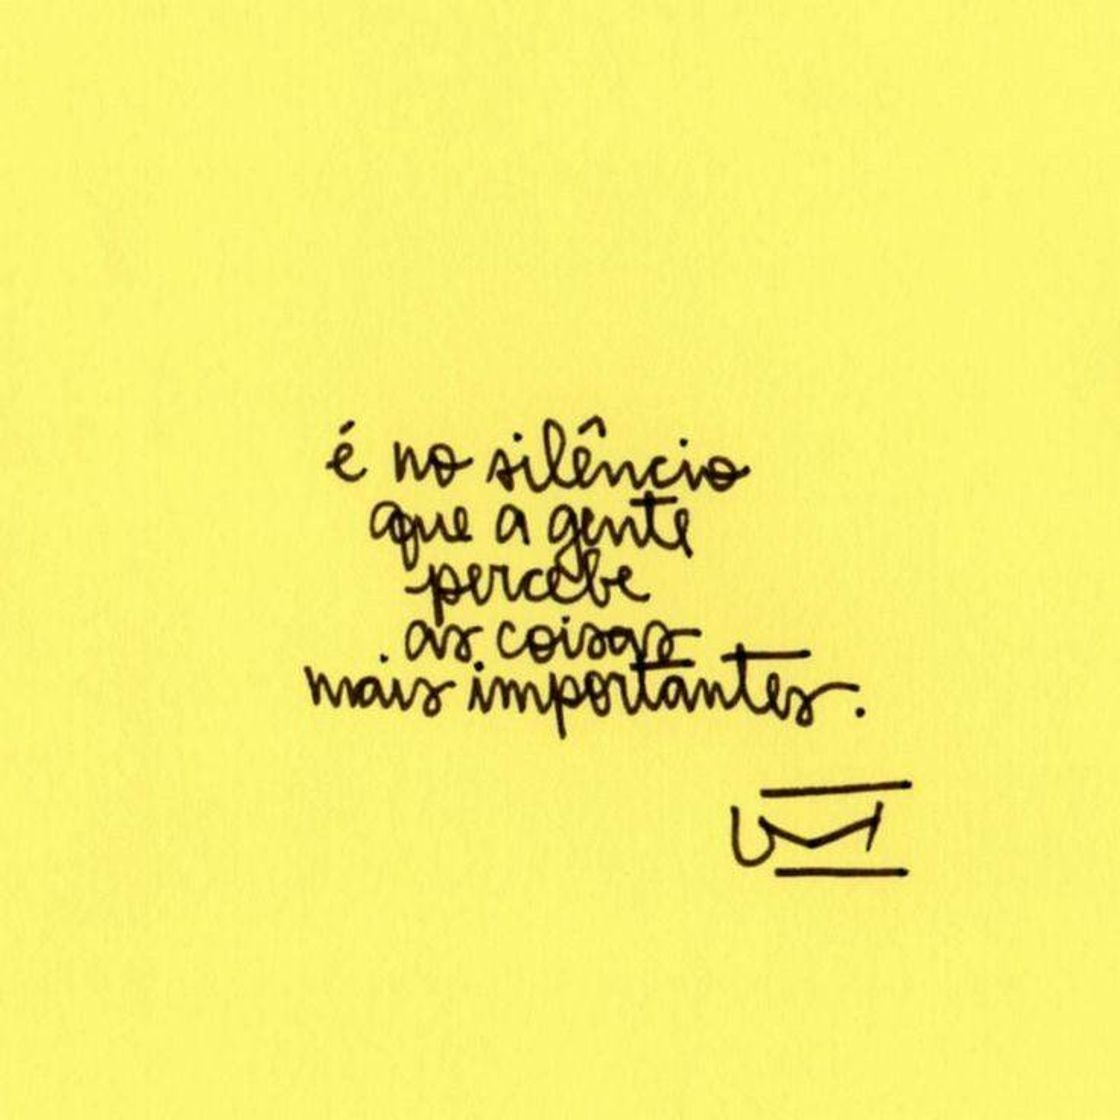 é no silêncio
que a gente
percebe
as coisas
mais importantes.